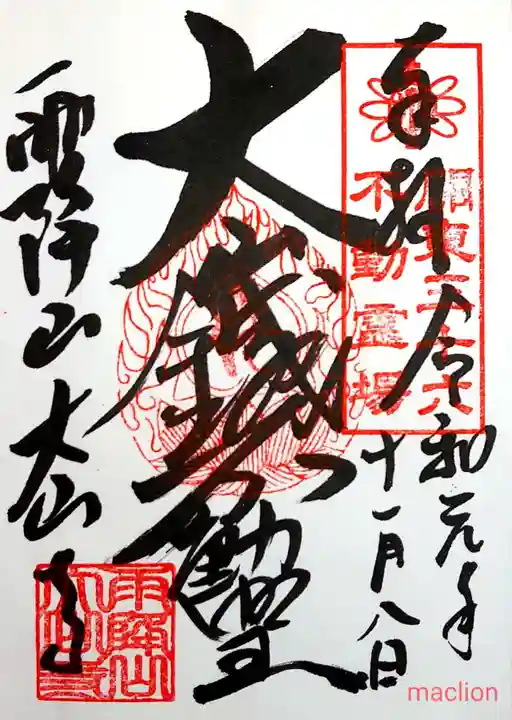 奉拝
令和元年
十一月八日
關東三十六
不動靈場
大鐵不動
雨降山大山寺
雨降山
大山寺
maclion